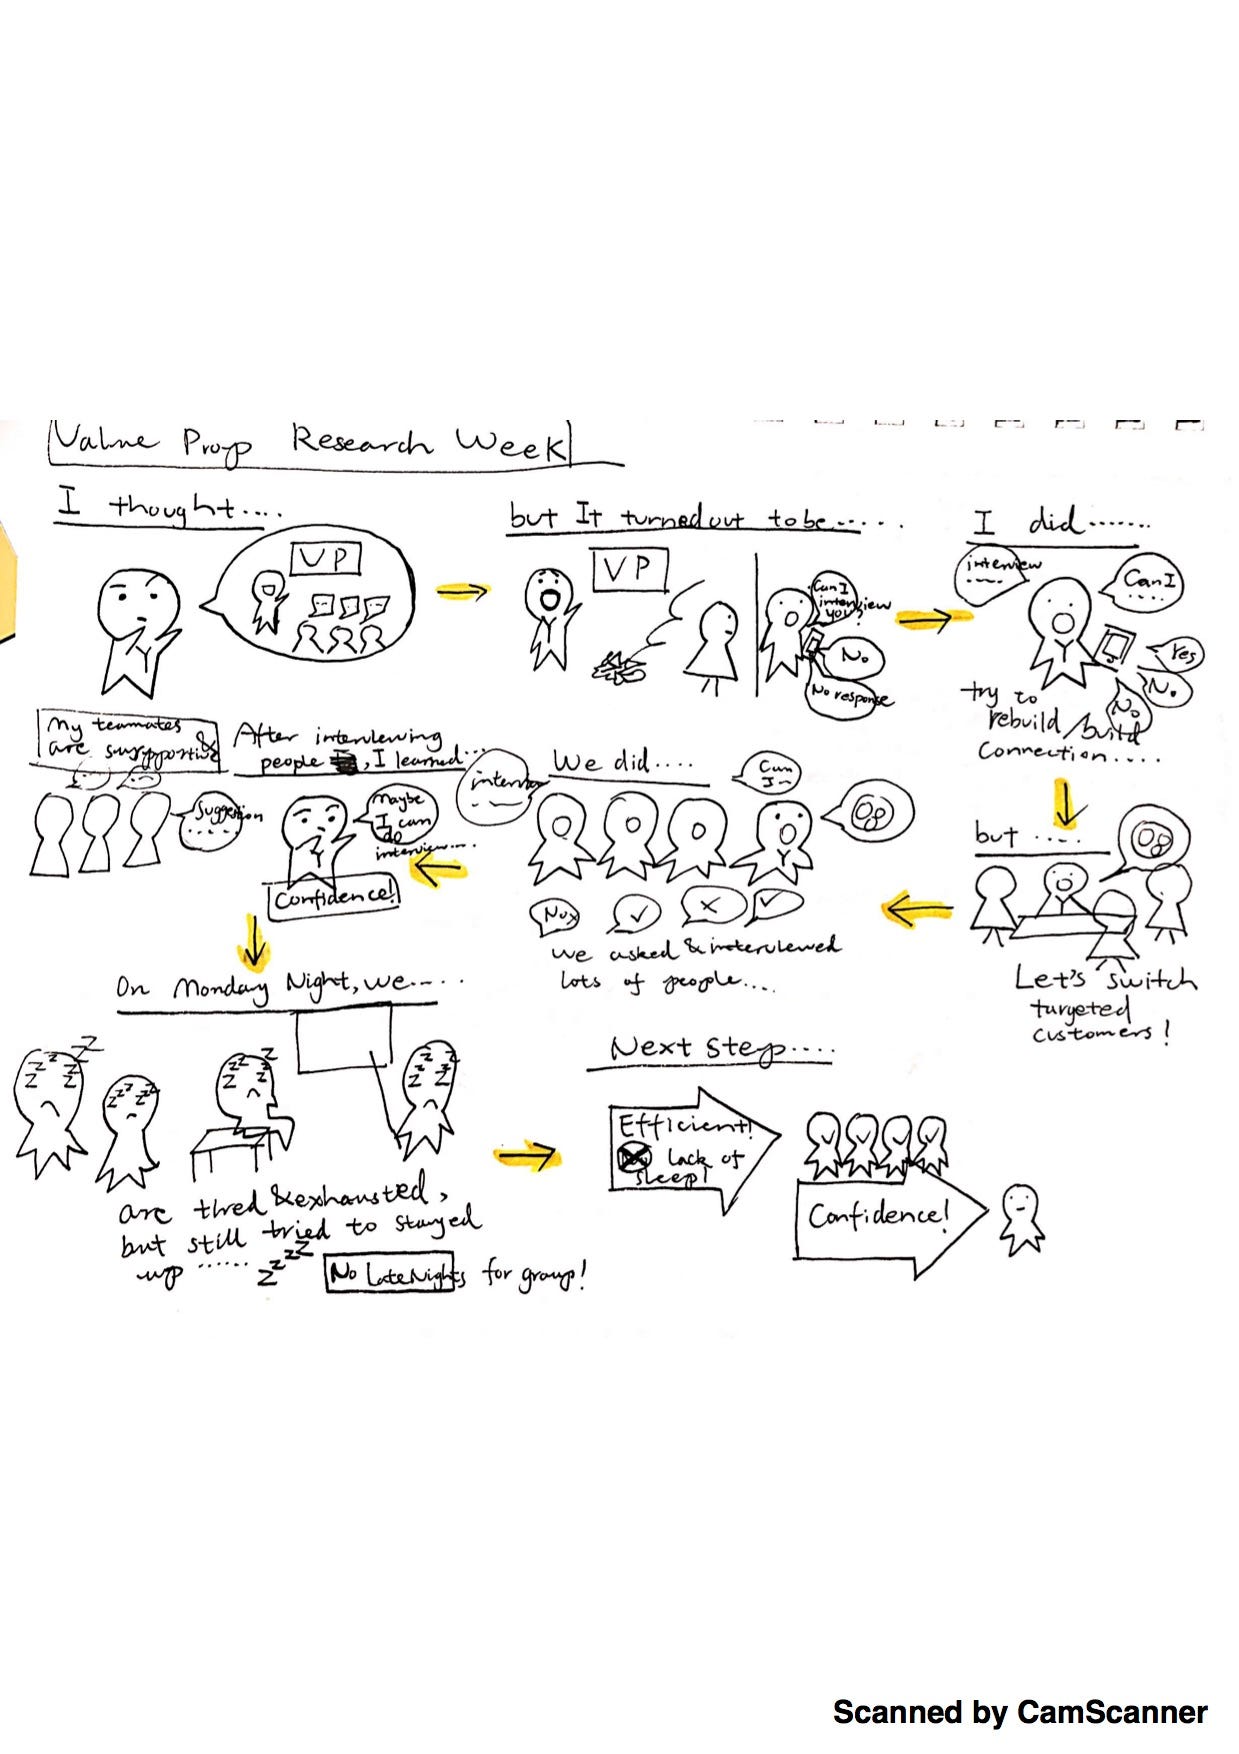 Value Prop Research Week
I thought....
VP
but It turned out to be.....
VP
Can I
interview
you?
No
No response
I did.......
interview
----
Can I
.....
Yes
No
No
try to
rebuild/build
connection....
but ....
Let's switch
turgeted
customers!
We did....
interview
Can
I--
No x
we asked & interviewed
lots of people....
After interviewing
people , I learned...
Maybe
I can
do
interview....
Confidence!
My teammates
are supportive
&
Suggestion
.....
On Monday Night, we.....
zzz
are tired & exhausted,
but still tried to stayed
up ......
zzzz
No LateNights for group!
Next step....
Efficient!
lack of
sleep!
Confidence!
Scanned by CamScanner